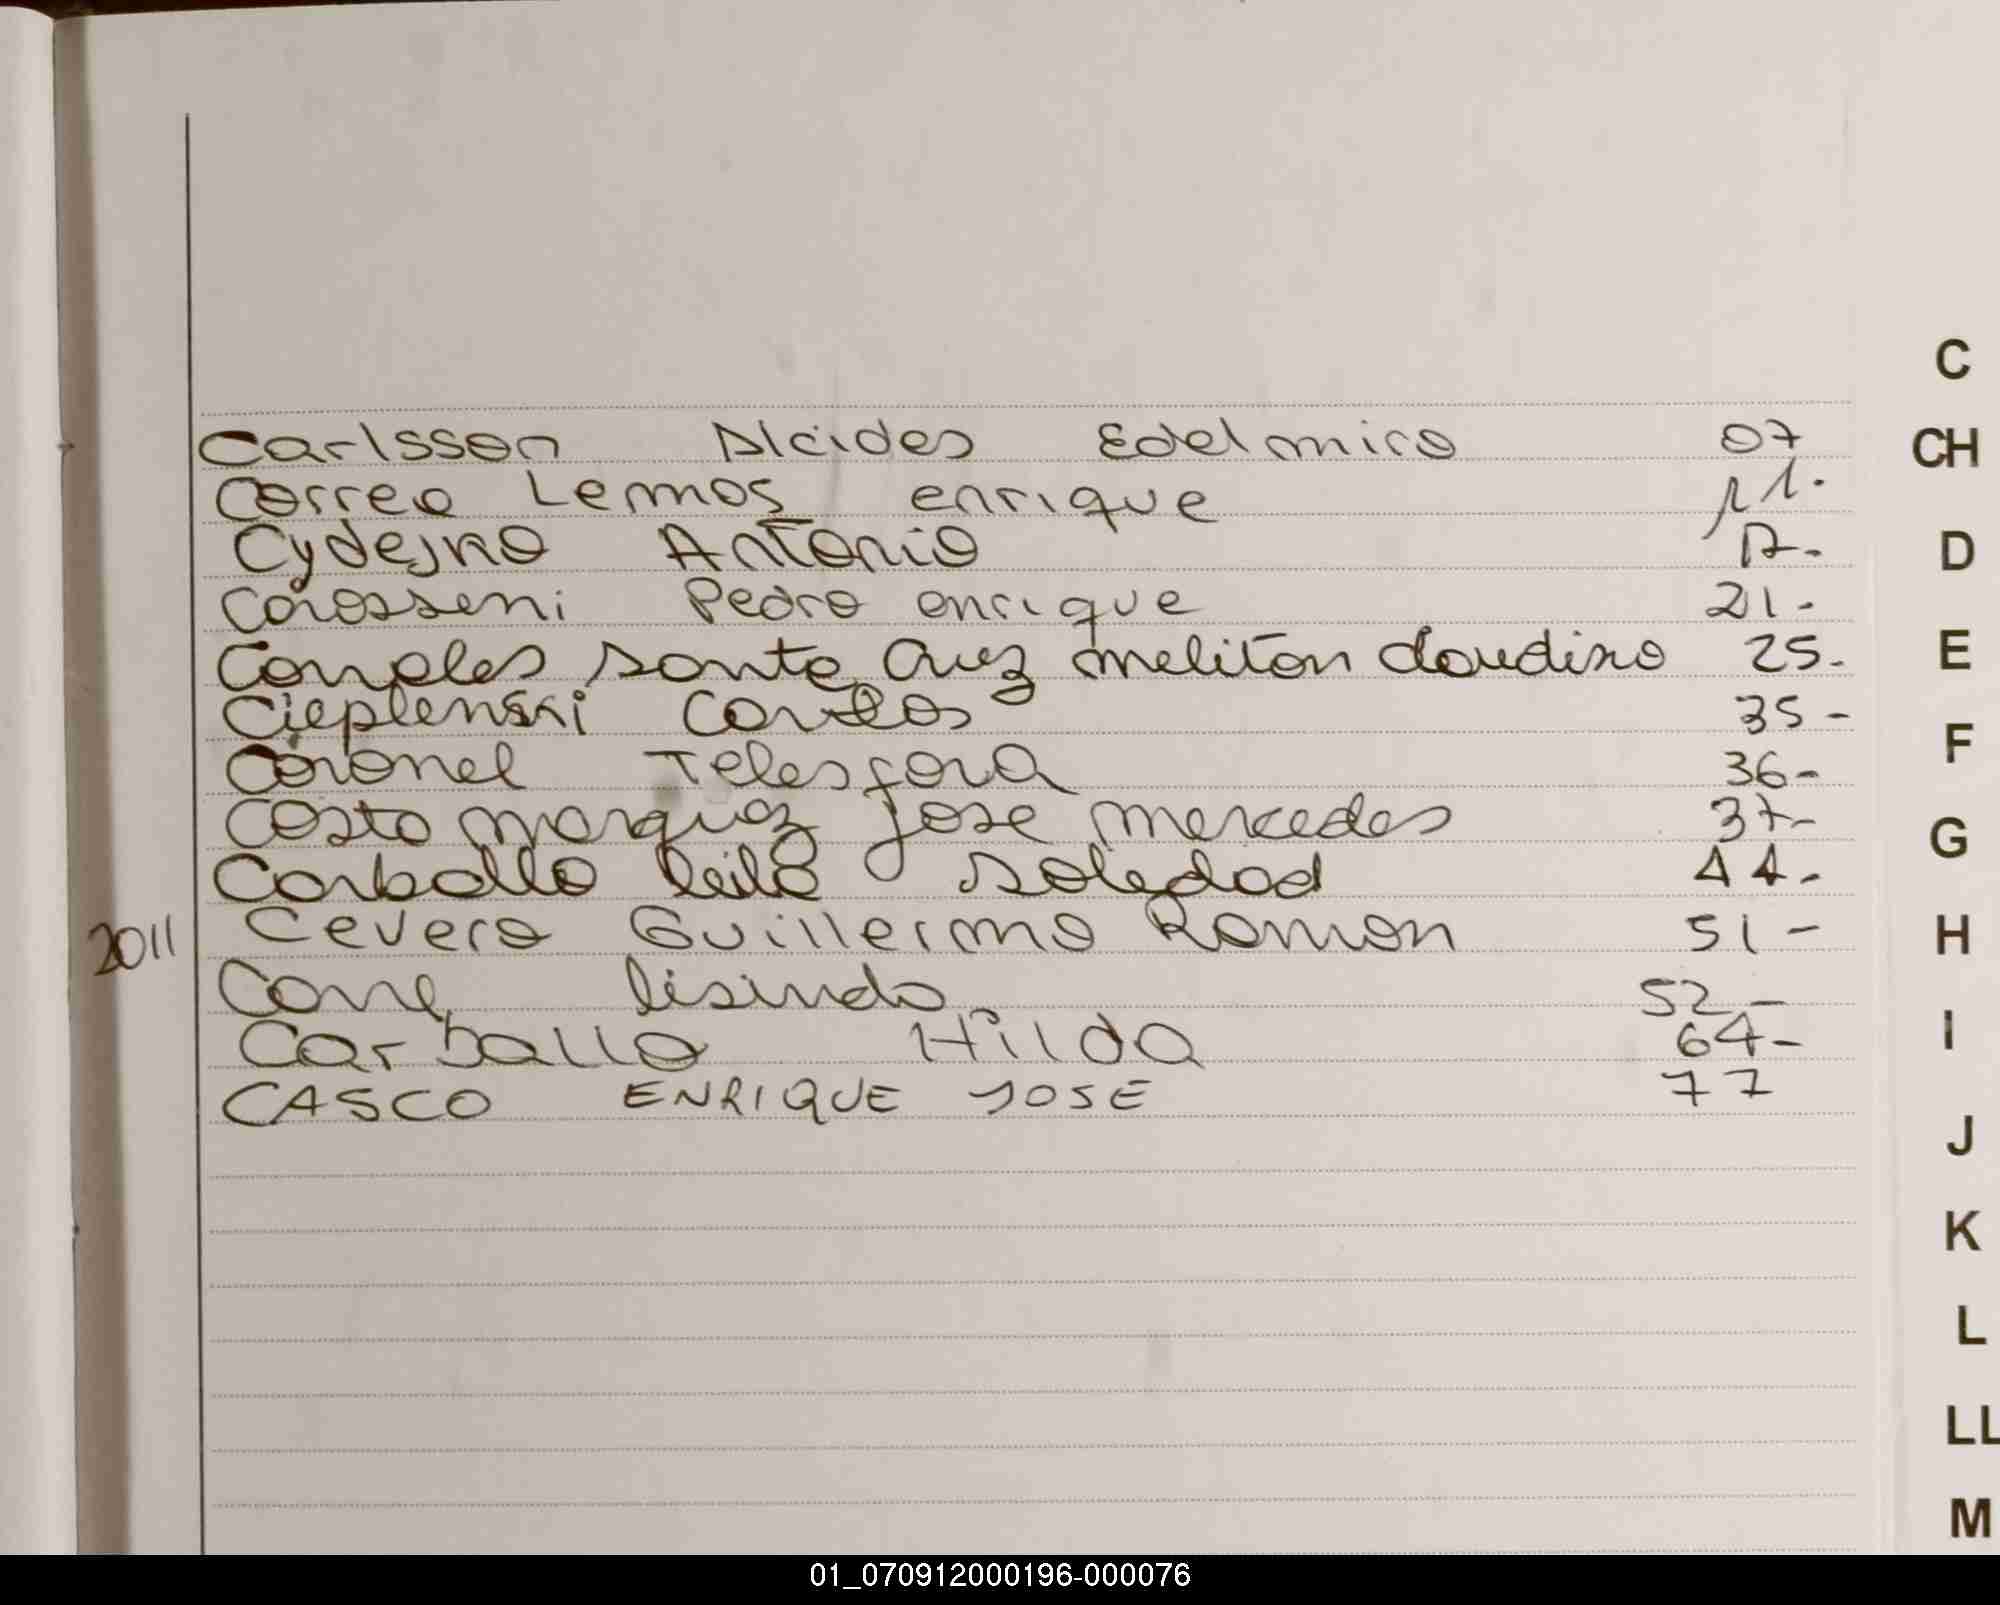 Carlsson Alcides Edelmiro 07
Correa Lemos enrique 11.
Cydejko Antonio 17-
Carosseni Pedro enrique 21-
santa Cruz meliton claudino 25-
Cieplenski Carlos 35-
Coronel Telesfora 36-
Costa marquez jose mercedes 37-
Carballo leila soledad 44-
2011 Cevero Guillermo Ramon 51-
lisindo 52-
Carballo Hilda 64-
CASCO ENRIQUE JOSE 77
C
CH
D
E
F
G
H
I
J
K
L
LL
M
01_070912000196-000076